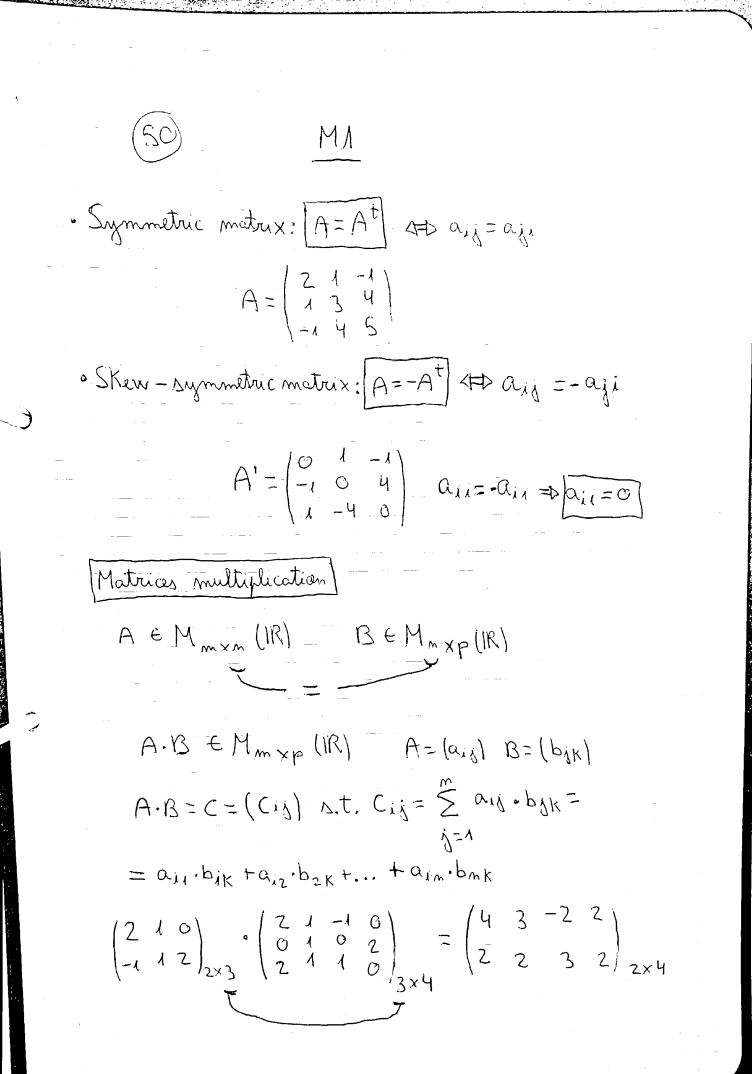 SC M1
• Symmetric matrix: A = A^t ⇔ a_ij = a_ji
A = ( 2 1 -1
1 3 4
-1 4 5 )
• Skew-symmetric matrix: A = -A^t ⇔ a_ij = -a_ji
A' = ( 0 1 -1
-1 0 4
1 -4 0 ) a_ii = -a_ii ⇒ a_ii = 0
Matrices multiplication
A ∈ M_m×n (ℝ) B ∈ M_n×p (ℝ)
=
A·B ∈ M_m×p (ℝ) A = (a_ij) B = (b_jk)
A·B = C = (C_ij) s.t. C_ij = Σ_{j=1}^{n} a_ij · b_jk =
= a_i1 · b_1k + a_i2 · b_2k + ... + a_in · b_nk
( 2 1 0
-1 1 2 )_2×3 · ( 2 1 -1 0
0 1 0 2
2 1 1 0 )_3×4 = ( 4 3 -2 2
2 2 3 2 )_2×4